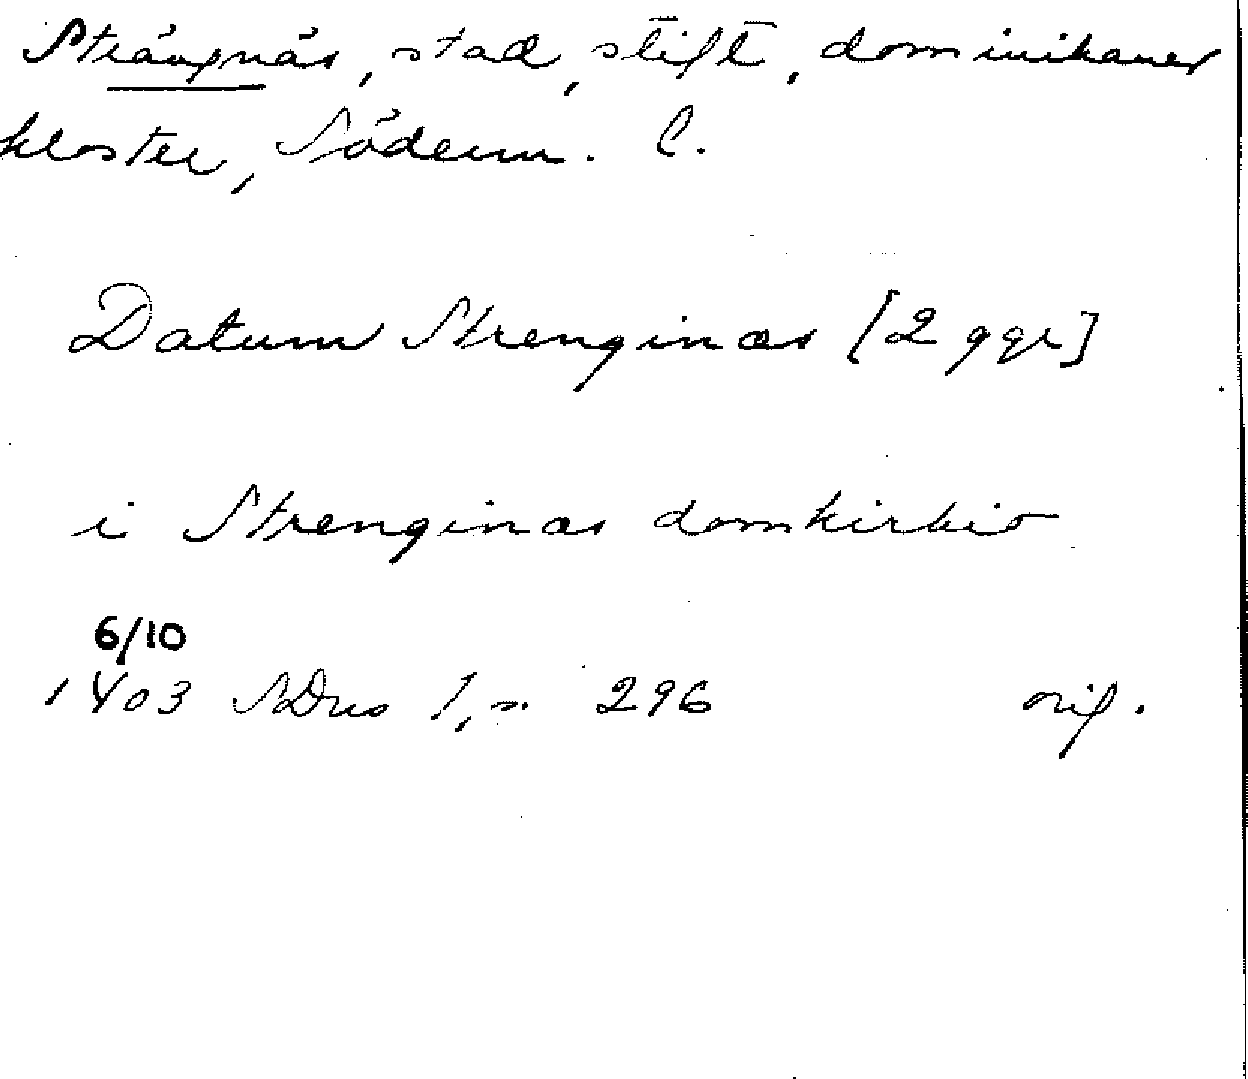 Strängnäs, stad, stift, dominikaner
kloster, Söderm. l.
Datum Strenginæs [2 ggr]
i Strenginæs domkirkio
6/10
1403 SDns 1, s. 296 orig.